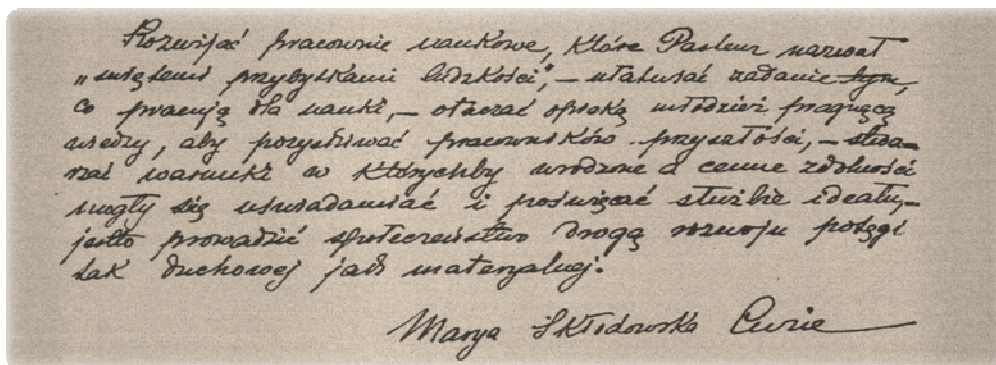 Rozwijać pracownie naukowe, które Pasteur nazwał
„świętemi przybytkami ludzkości”, – ułatwiać zadanie tym,
co pracują dla nauki, – otaczać opieką młodzież pragnącą
wiedzy, aby pozyskiwać pracowników przyszłości, – stwa-
rzać warunki w którychby wrodzone a cenne zdolności
mogły się uświadamiać i poświęcać służbie ideału, –
jestto prowadzić społeczeństwo drogą rozwoju potęgi
tak duchowej jak materyalnej.
Marya Skłodowska Curie